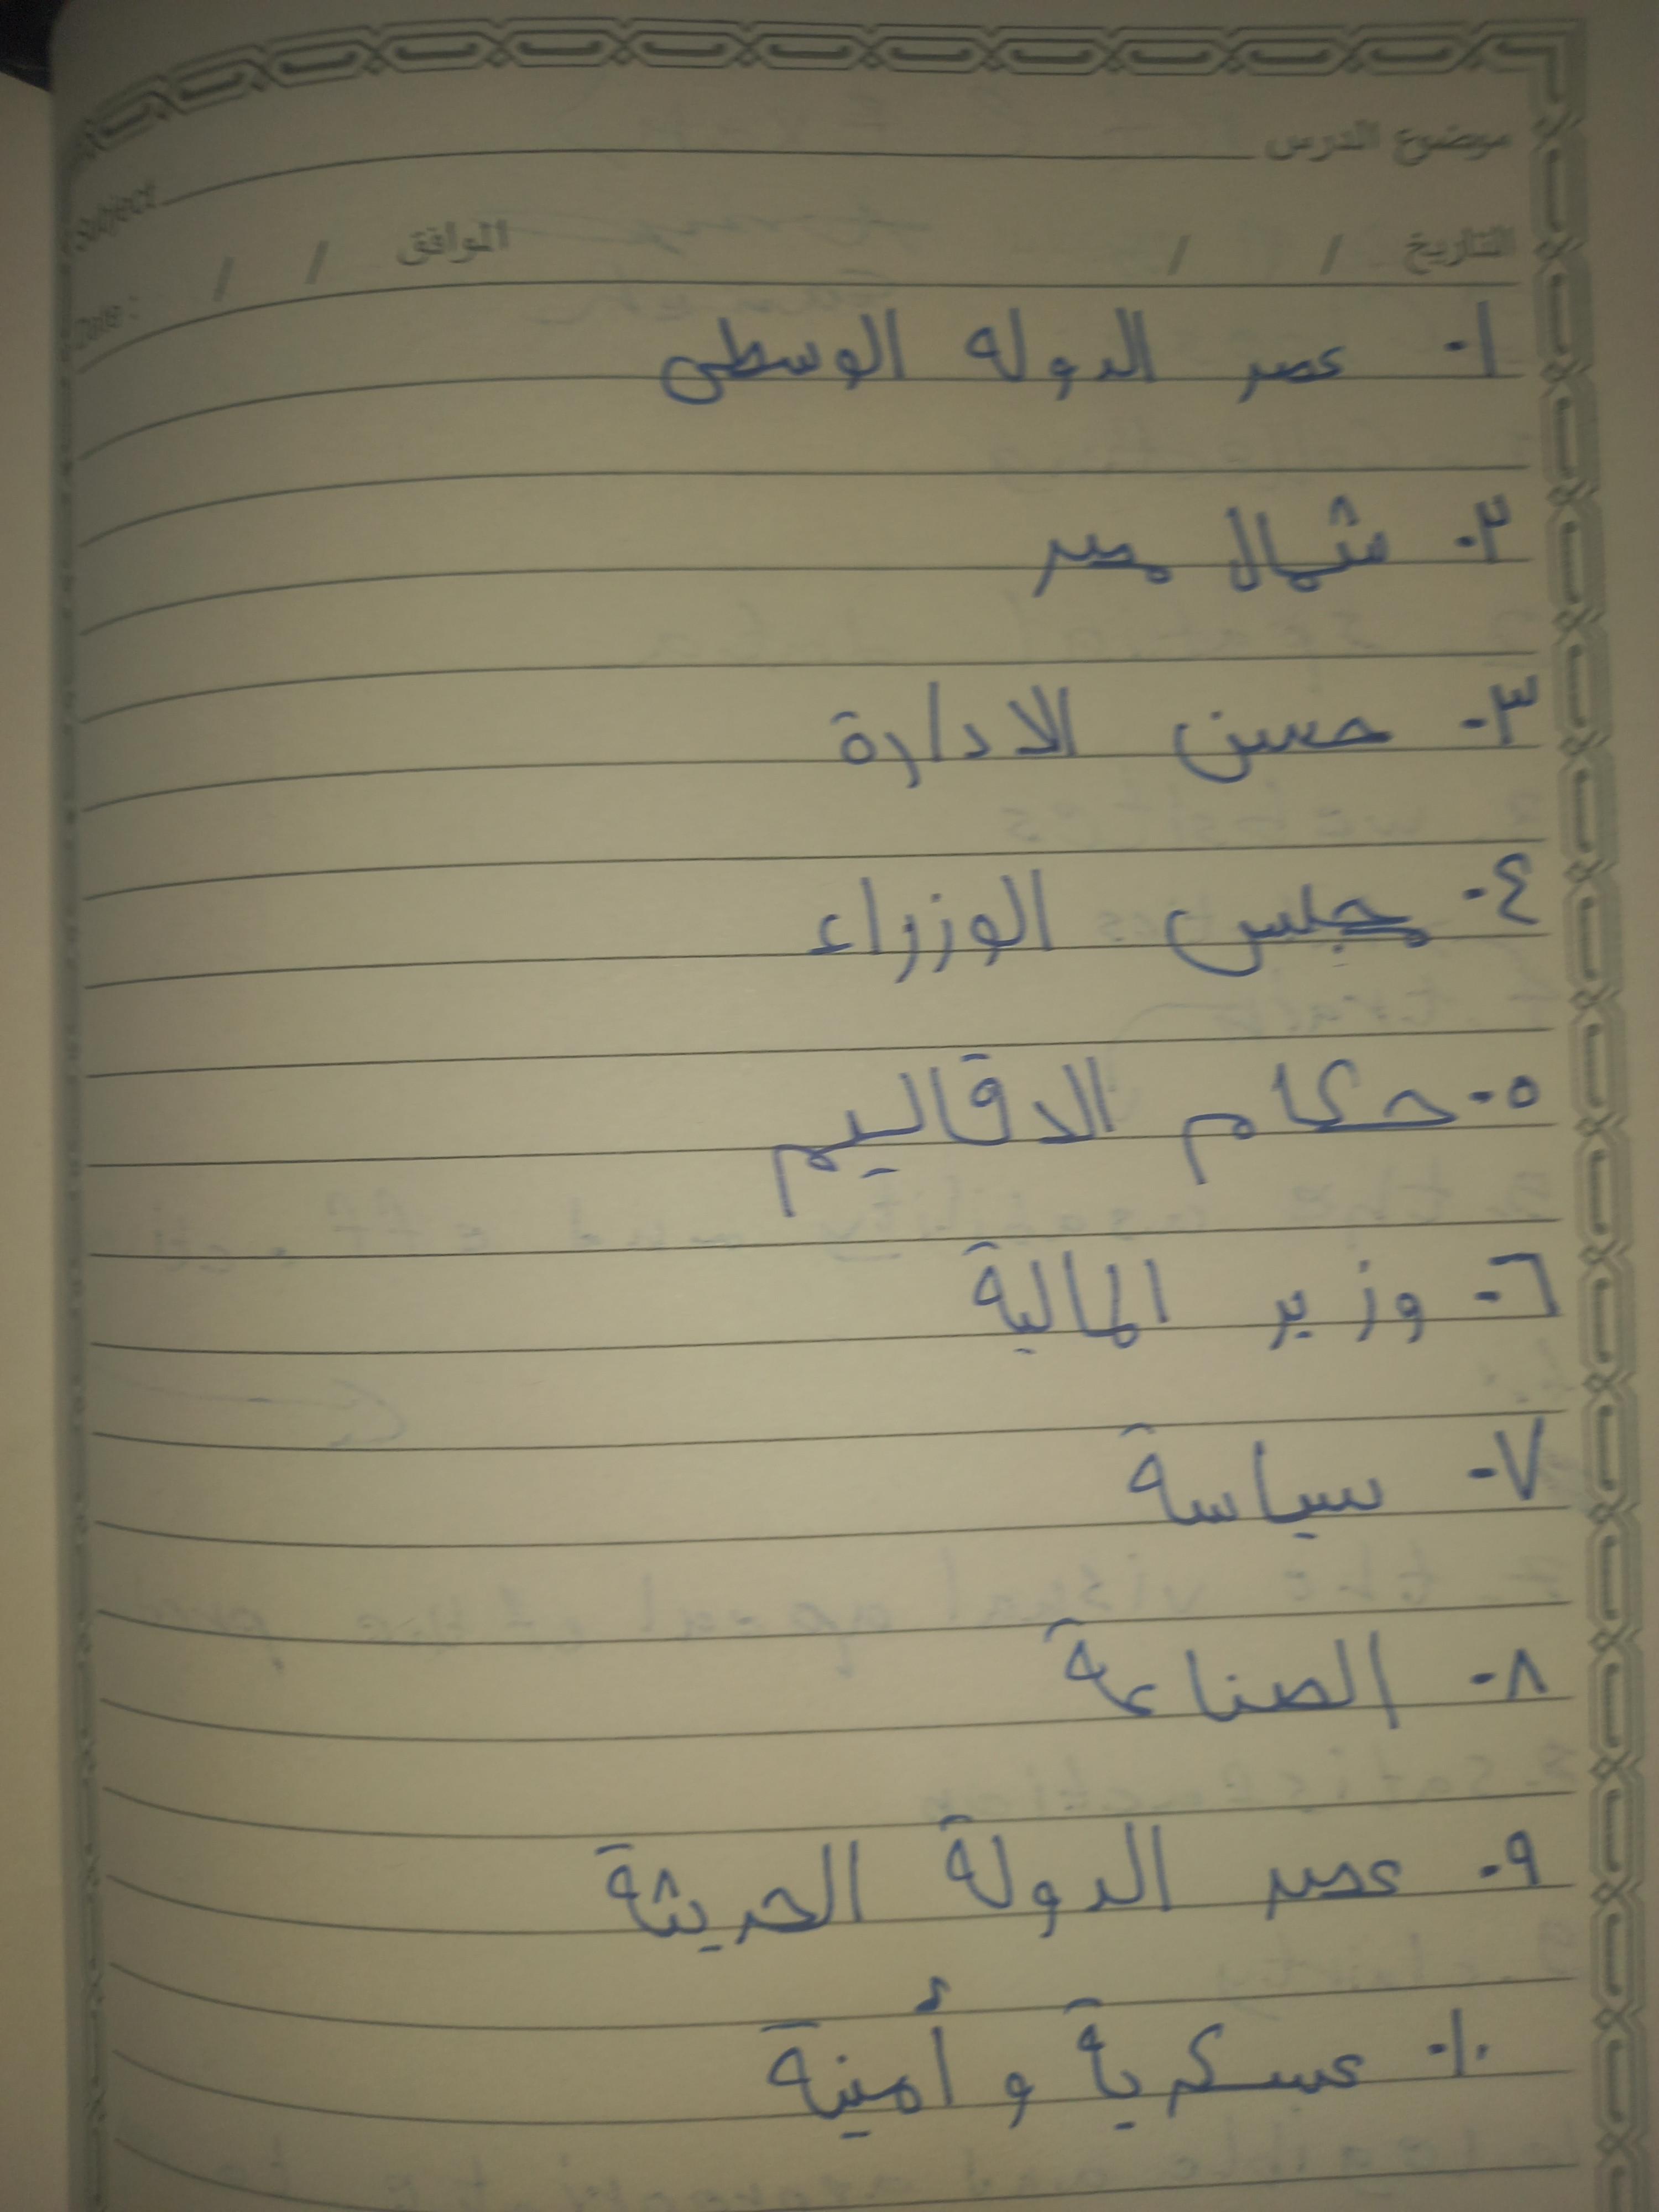 موضوع الدرس
Subject
التاريخ / / الموافق / / Date :
١- عصر الدوله الوسطى
٢- شمال مصر
٣- حسن الادارة
٤- مجلس الوزراء
٥- حكام الاقاليم
٦- وزير المالية
٧- سياسة
٨- الصناعة
٩- عصر الدولة الحديثة
١٠- عسكرية و أمنية